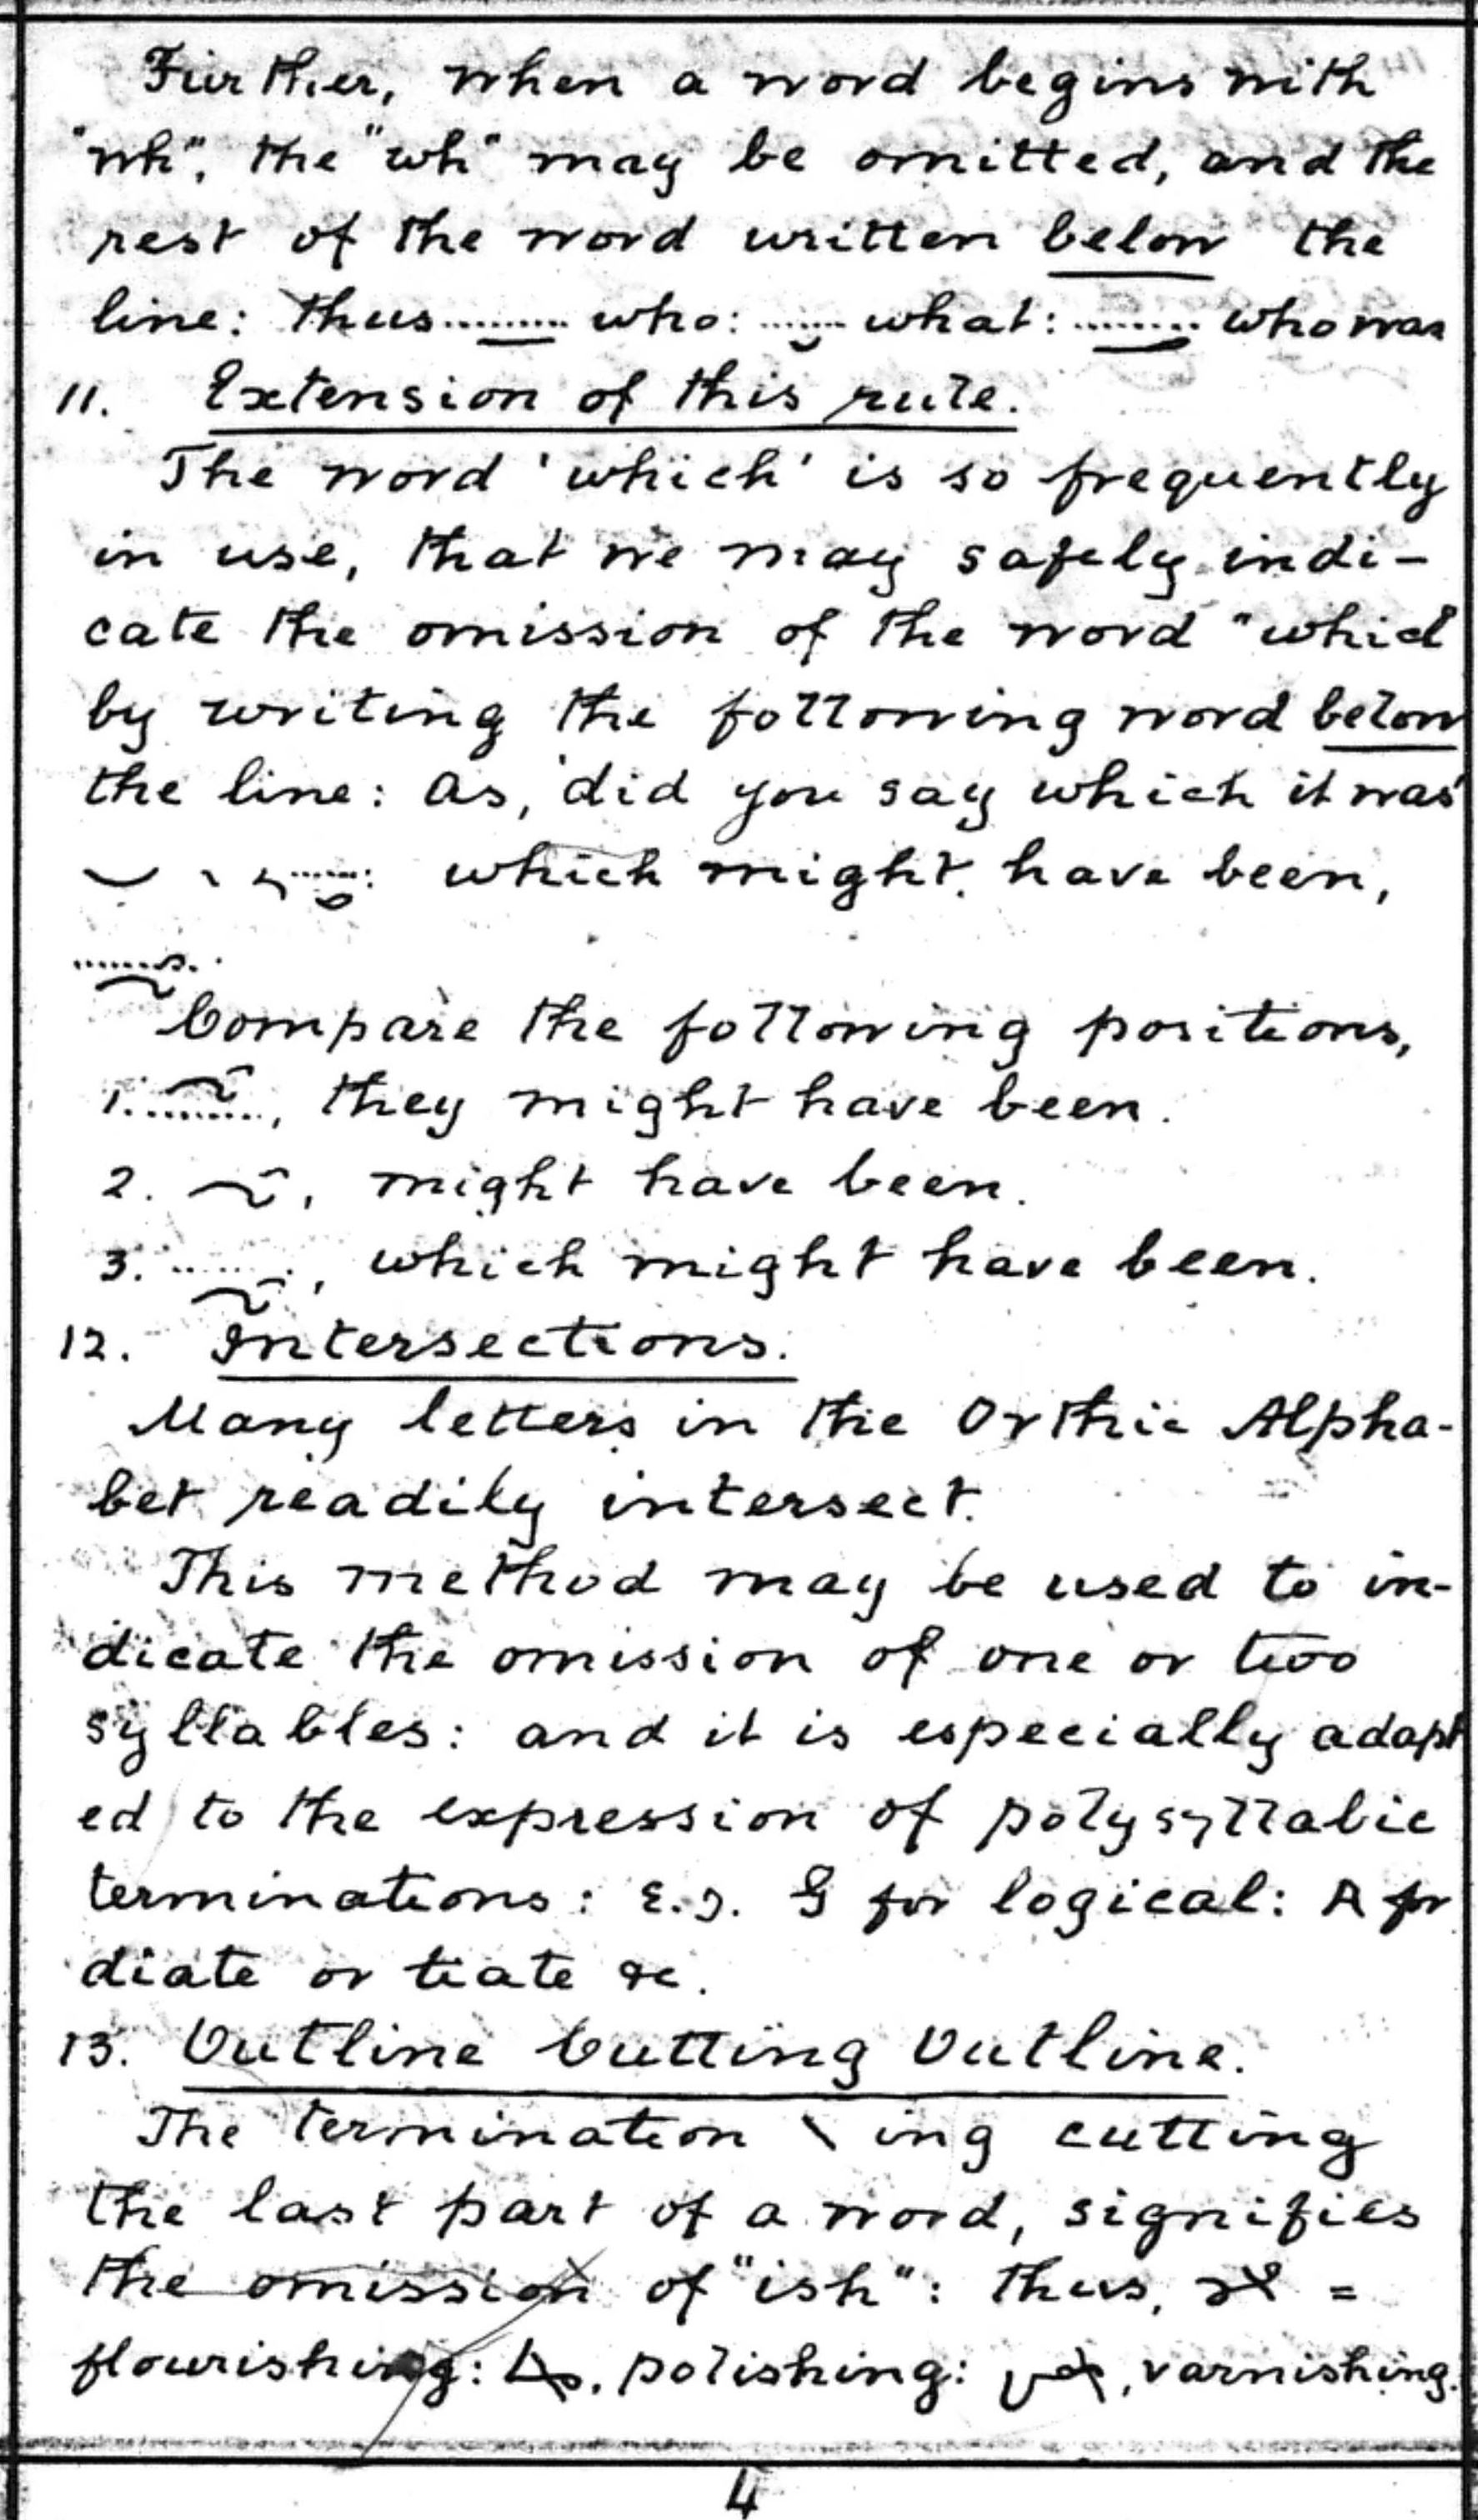 Further, when a word begins with
"wh", the "wh" may be omitted, and the
rest of the word written below the
line: thus ........ who: ...... what: ........ who was
11. Extension of this rule.
The word 'which' is so frequently
in use, that we may safely indi-
cate the omission of the word "which
by writing the following word below
the line: as, 'did you say which it was'
: which might have been,
........
Compare the following positions,
1. ........, they might have been.
2. , might have been.
3. ......, which might have been.
12. Intersections.
Many letters in the Orthic Alpha-
bet readily intersect.
This method may be used to in-
dicate the omission of one or two
syllables: and it is especially adapt
ed to the expression of polysyllabic
terminations: E.g. for logical: for
diate or tiate &c.
13. Outline Cutting Outline.
The termination \ ing cutting
the last part of a word, signifies
the omission of "ish": thus, =
flourishing: , polishing: , varnishing.
4